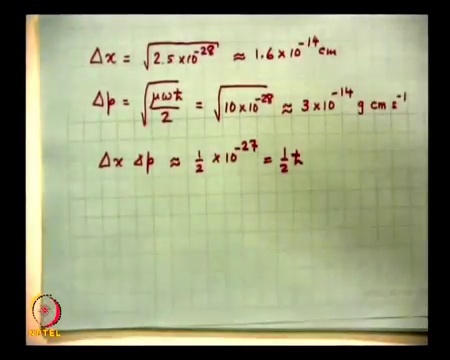 Δx = √2.5 × 10⁻²⁸ ≈ 1.6 × 10⁻¹⁴ cm
Δp = √μωħ/2 = √10 × 10⁻²⁸ ≈ 3 × 10⁻¹⁴ g cm s⁻¹
Δx Δp ≈ 1/2 × 10⁻²⁷ = 1/2 ħ
NPTEL